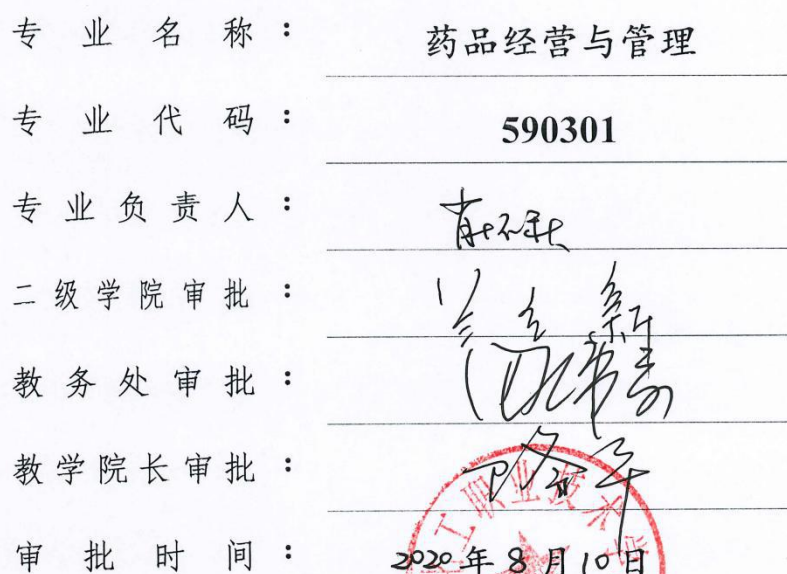 专业名称： 药品经营与管理
专业代码： 590301
专业负责人：
二级学院审批：
教务处审批：
教学院长审批：
工职业技术学
审批时间： 2020年8月10日